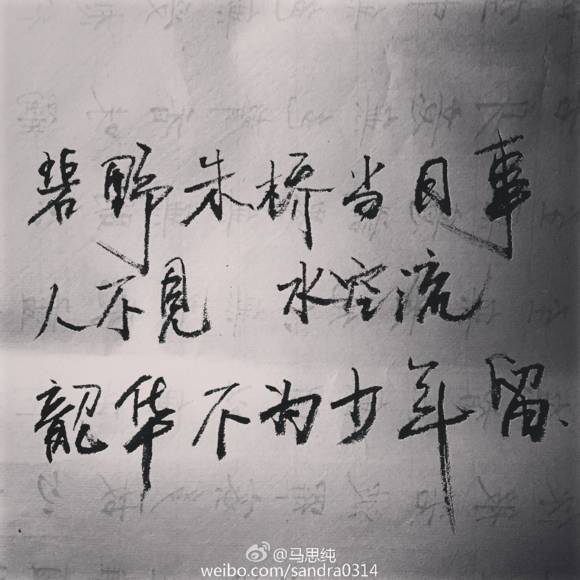 碧野朱桥当日事
人不见 水空流
韶华不为少年留、
@马思纯
weibo.com/sandra0314